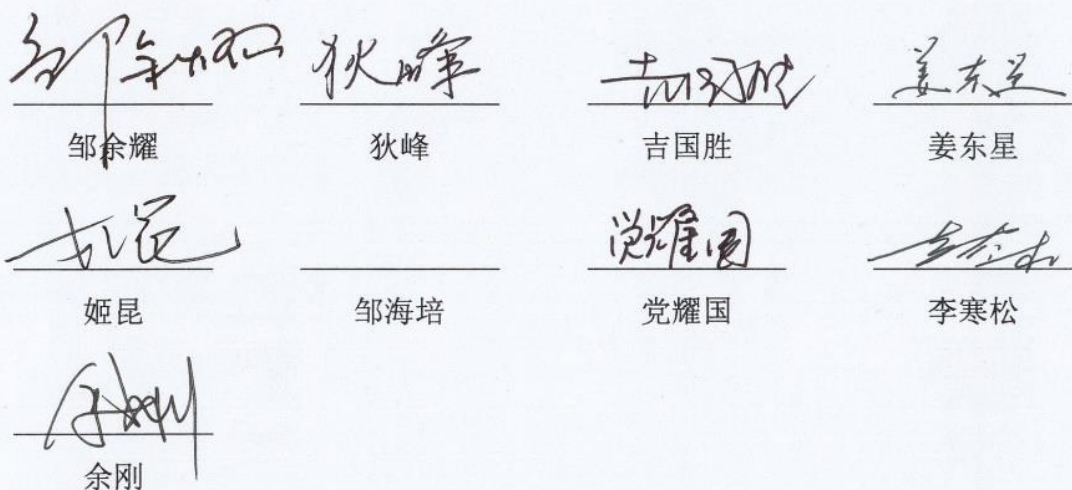 邹余耀 狄峰 吉国胜 姜东星
邹余耀 狄峰 吉国胜 姜东星
姬昆 党耀国
姬昆 邹海培 党耀国 李寒松
余刚